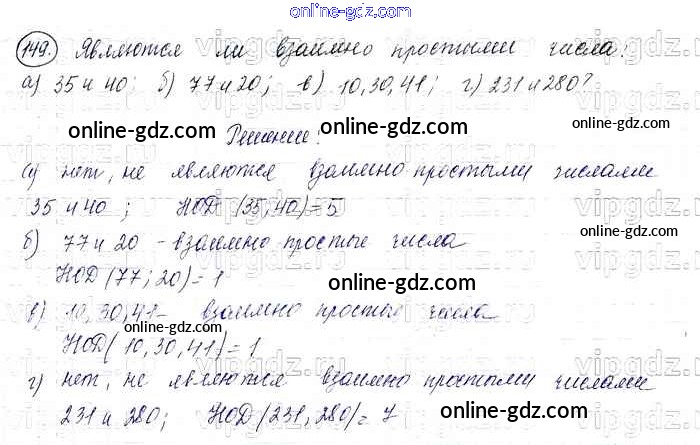 online-gdz.com
149. Являются ли взаимно простыми числа:
а) 35 и 40; б) 77 и 20; в) 10, 30, 41; г) 231 и 280?
Решение:
online-gdz.com online-gdz.com
а) нет, не являются взаимно простыми числами
35 и 40; НОД (35, 40) = 5
online-gdz.com
б) 77 и 20 - взаимно простые числа
НОД (77; 20) = 1
online-gdz.com
в) 10, 30, 41 - взаимно простые числа
online-gdz.com
НОД (10, 30, 41) = 1
online-gdz.com
г) нет, не являются взаимно простыми числами
231 и 280; НОД (231, 280) = 7
online-gdz.com